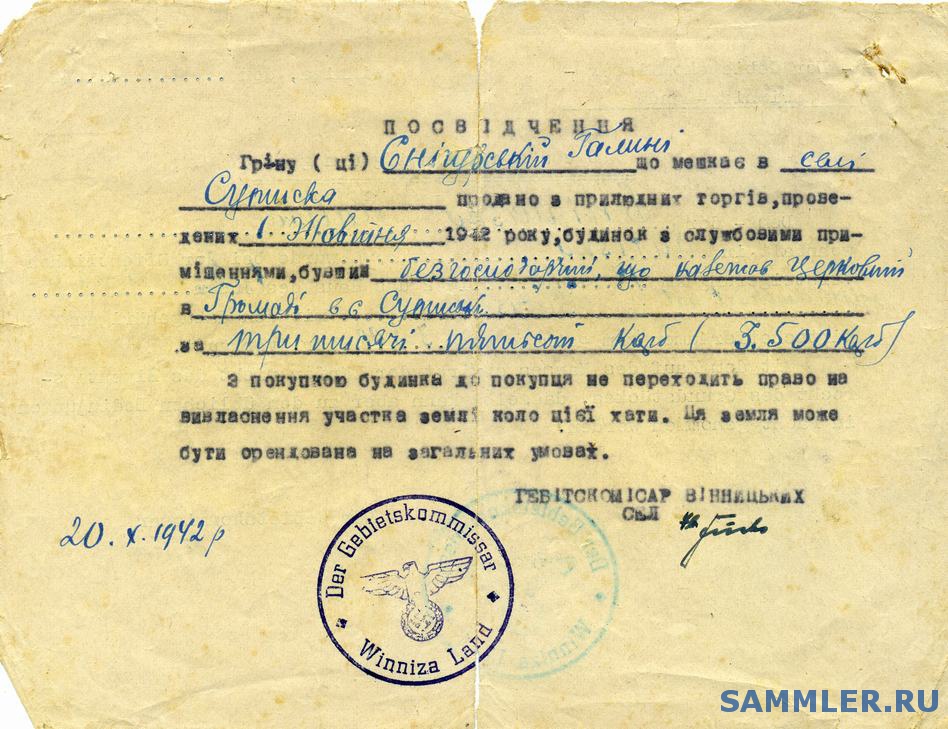 ПОСВІДЧЕННЯ
Гр-ну ( ці) Снігурській Галині що мешкає в селі
Суписка продано з прилюдних торгів,прове-
дених 1 Жовтня 1942 року,будинок з службовими при-
міщеннями,бувший безгосподарчий, що належав Церковній
в Громаді в с Суписьк
за три тисячі пятьсот карб ( 3.500 карб)
З покупкою будинка до покупця не переходить право на
вивласнення участка землі коло цієї хати. Ця земля може
бути орендована на загальних умовах.
ГЕБІТСКОМІСАР ВІННИЦЬКИХ
СЕЛ
20. X. 1942 р
Der Gebietskommissar
Winniza Land
Der Gebietskommissar
Winniza Land
SAMMLER.RU